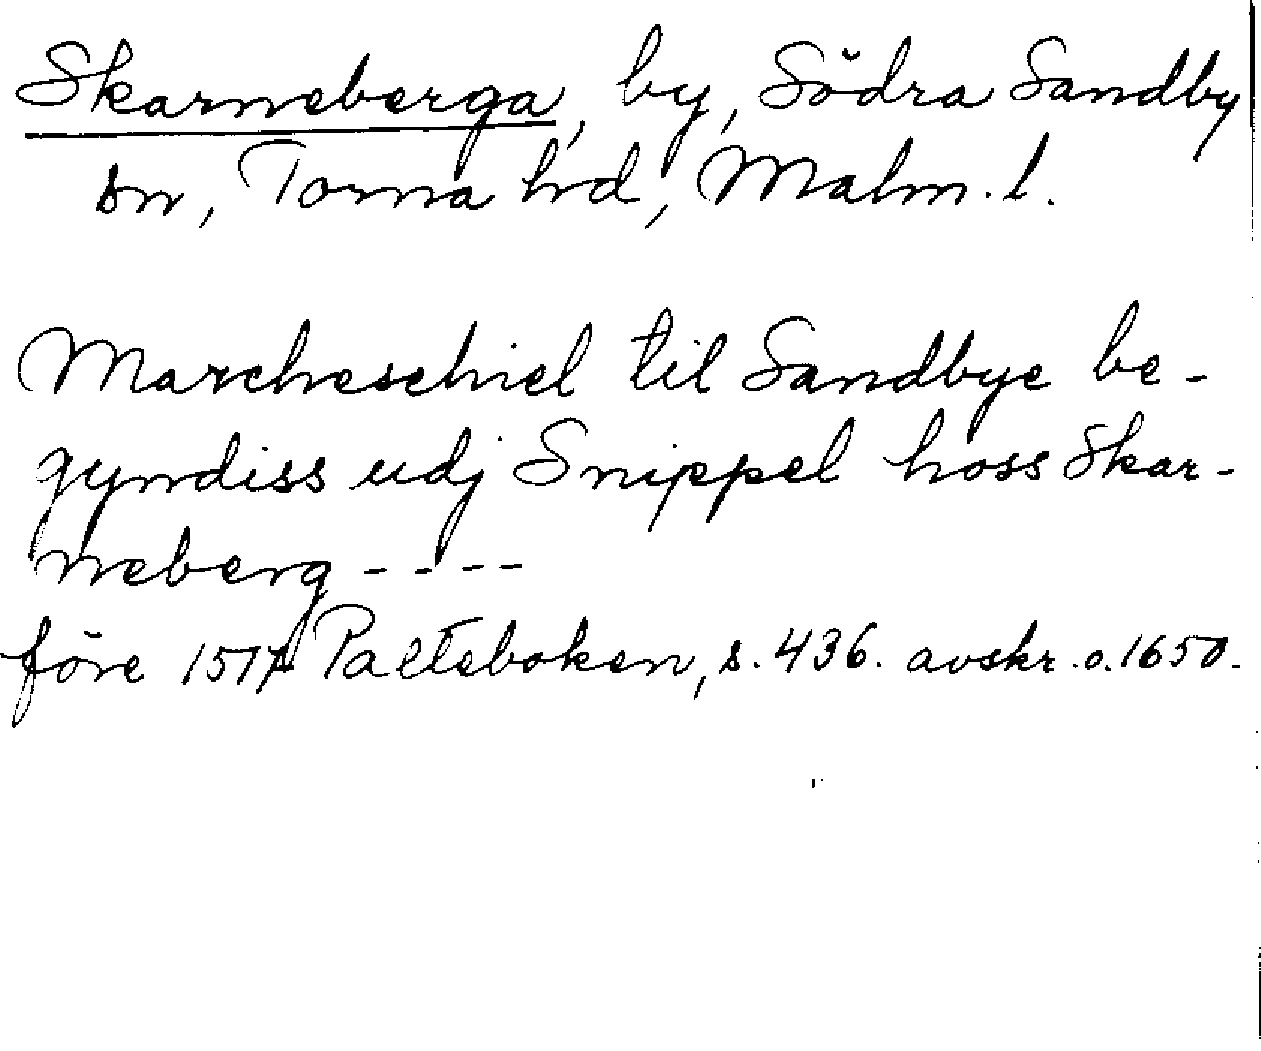 Skarneberga, by, Södra Sandby
sn, Torna hd, Malm. l.
Marcheschiel til Sandbye be-
gyndiss udj Snippel hoss Skar-
neberg - - - -
före 1517 Palteboken, s. 436. avskr. o. 1650.